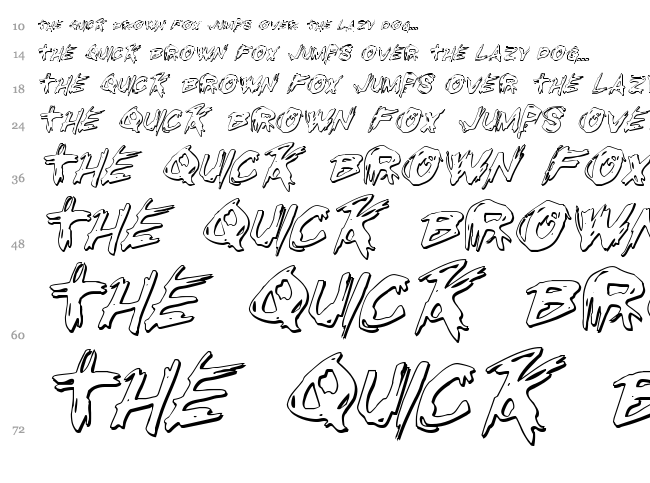 10 THE QUICK BROWN FOX JUMPS OVER THE LAZY DOG...
14 THE QUICK BROWN FOX JUMPS OVER THE LAZY DOG...
18 THE QUICK BROWN FOX JUMPS OVER THE LAZY
24 THE QUICK BROWN FOX JUMPS OVE
36 THE QUICK BROWN FOX
48 THE QUICK BROWN
60 THE QUICK BRO
72 THE QUICK B